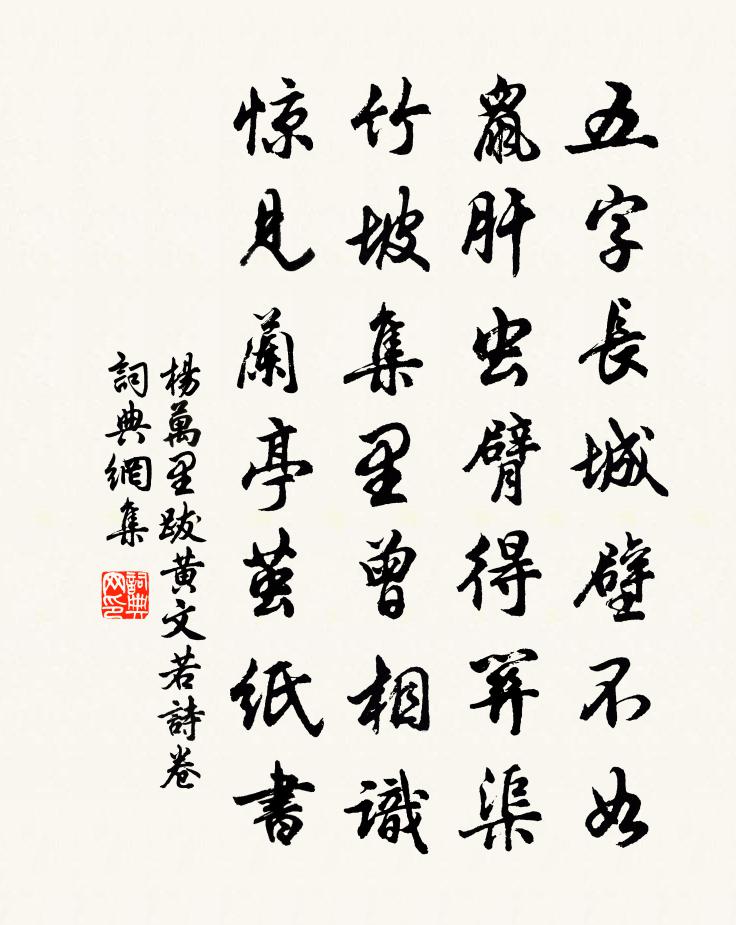 五字長城壁不如
鼠肝虫臂得羿渠
竹坡集里曾相識
惊見蘭亭茧纸書
楊萬里跋黄文若詩卷
詞典網集
詞典网印